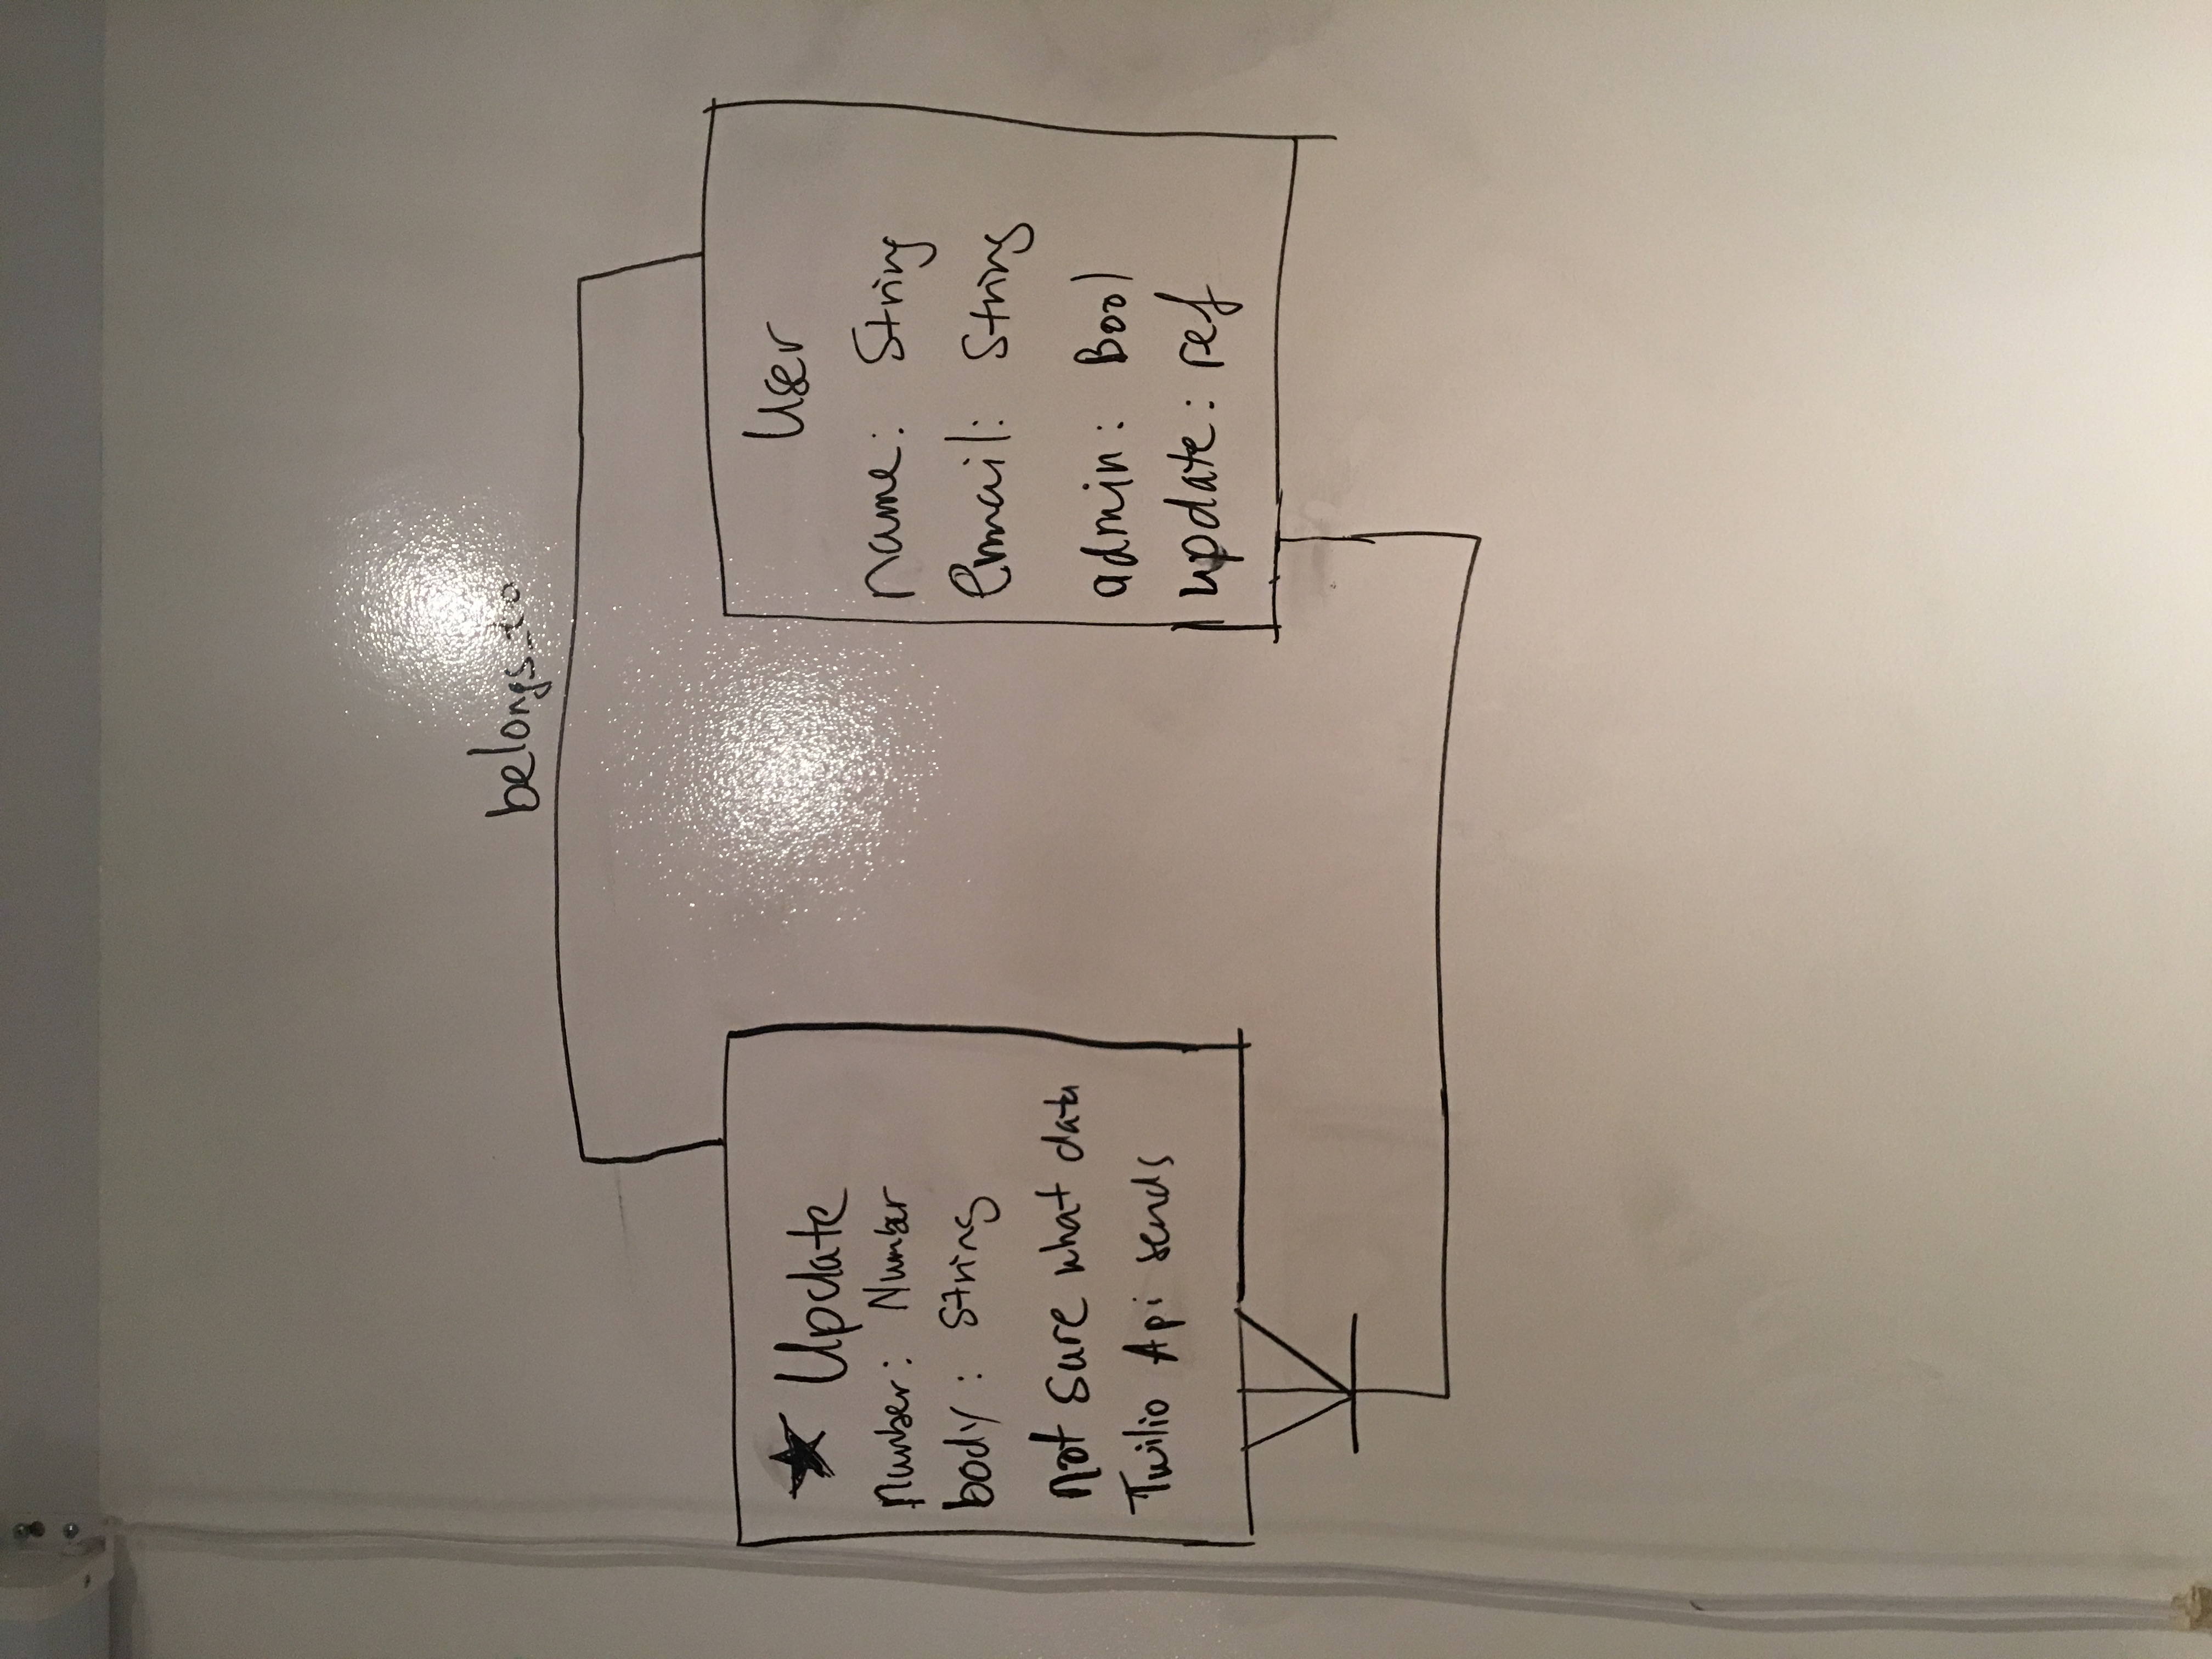 belongs_to
★ Update
number: Number
body: String
not sure what data
Twilio Api sends
User
name: String
Email: String
admin: Bool
update: ref